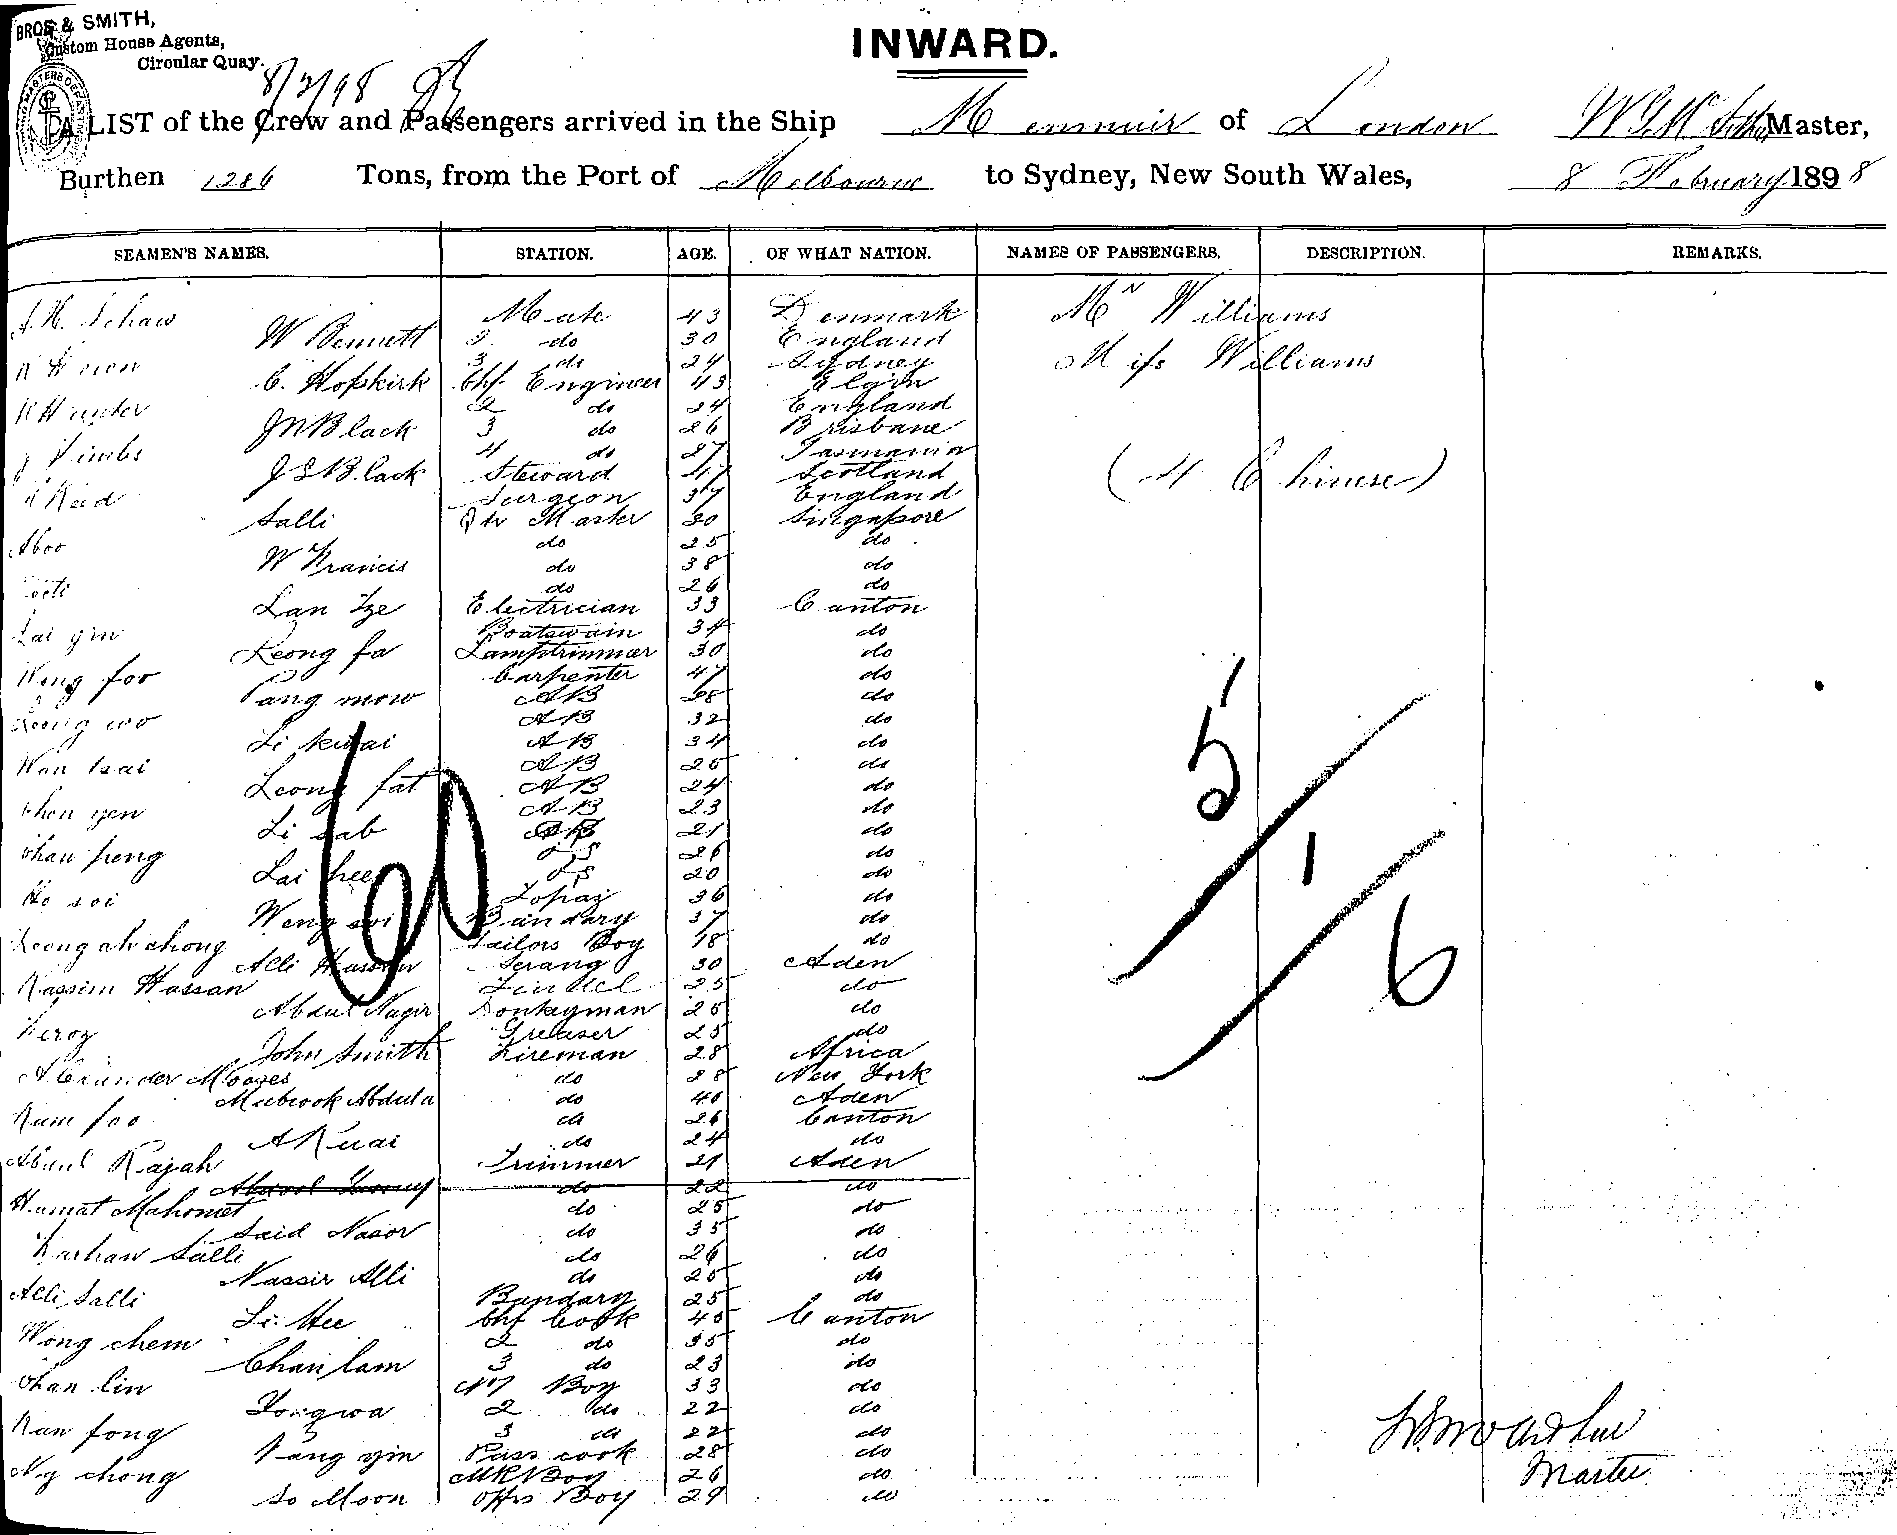 BROS & SMITH,
Custom House Agents,
Circular Quay.
8/2/98
INWARD.
A LIST of the Crew and Passengers arrived in the Ship Menmuir of London Master,
Burthen 1286 Tons, from the Port of Melbourne to Sydney, New South Wales, 8 February 1898
SEAMEN'S NAMES. STATION. AGE. OF WHAT NATION. NAMES OF PASSENGERS. DESCRIPTION. REMARKS.
J. H. Schaw Mate 43 Denmark Mr Williams
W Bennett 2 do 30 England
3 do 24 Sydney Miss Williams
C. Hopkirk Chf Engineer 43 Elgin
R Hunter 2 do 24 England
J M Black 3 do 26 Brisbane
4 do 27 Tasmania
J S Black Steward 47 Scotland (4 Chinese)
Reid Surgeon 37 England
Salli Qtr Master 30 Singapore
Aboo do 25 do
W Francis do 38 do
do 26 do
Lan Tze Electrician 33 Canton
Lai yin Boatswain 34 do
Leong fa Lamptrimmer 30 do
Weng foo Carpenter 47 do
Pang mow AB 28 do
Leong wo AB 32 do
Li kwai AB 34 do
Wan tsai AB 25 do
Leong fat AB 24 do
Chen yen AB 23 do
Li sab AB 21 do
Chan peng OS 26 do
Lai hee OS 20 do
Ho soi Topaz 36 do
Weng soi Bandary 37 do
Leong ah chong Sailors Boy 18 do
Alli Hassan Serang 30 Aden
Kassim Hassan Tindel 25 do
Abdul Nagir Donkeyman 25 do
Feroz Greaser 25 do
John Smith Fireman 28 Africa
Alexander Moozes do 28 New York
Mabrook Abdula do 40 Aden
Kum foo do 26 Canton
A Kuai do 24 do
Abdul Rajah Trimmer 21 Aden
do 22 do
Hamat Mahomet do 25 do
Said Nasor do 35 do
Farhan Salli do 26 do
Nassir Alli do 25 do
Alli Salli Bandary 25 do
Li Hee Chf Cook 40 Canton
Wong chem 2 do 35 do
Chan lam 3 do 23 do
Chan lin No 1 Boy 33 do
Tongwa 2 do 22 do
Kan fong 3 do 22 do
Pang yin Pass cook 28 do
Ng chong MR Boy 26 do
So Moon Offrs Boy 29 do
60
5
1
6
Master